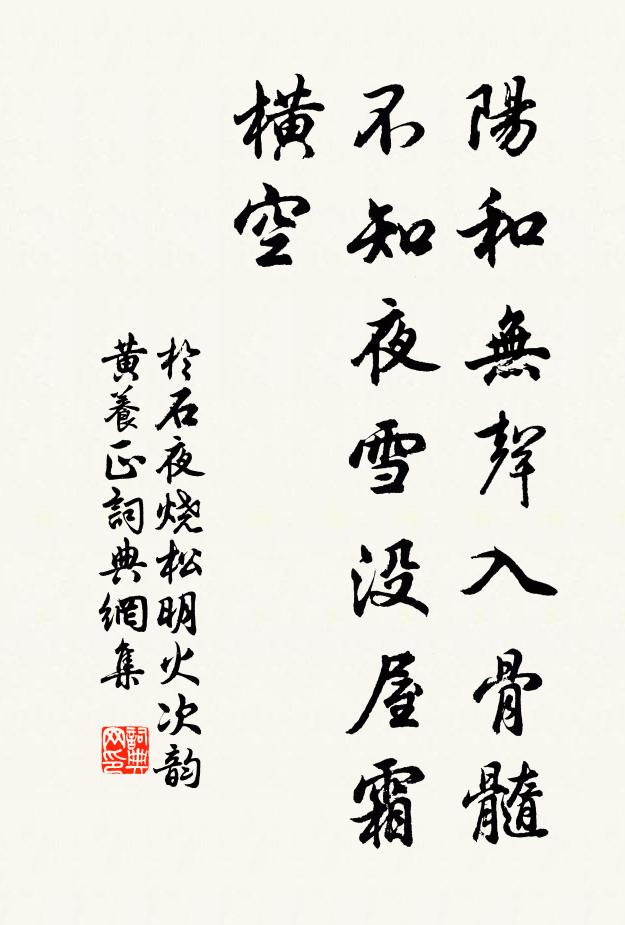 陽和無聲入骨髓
不知夜雪没屋霜
橫空
於石夜烧松明火次韵
黃養正詞典網集
詞典網印